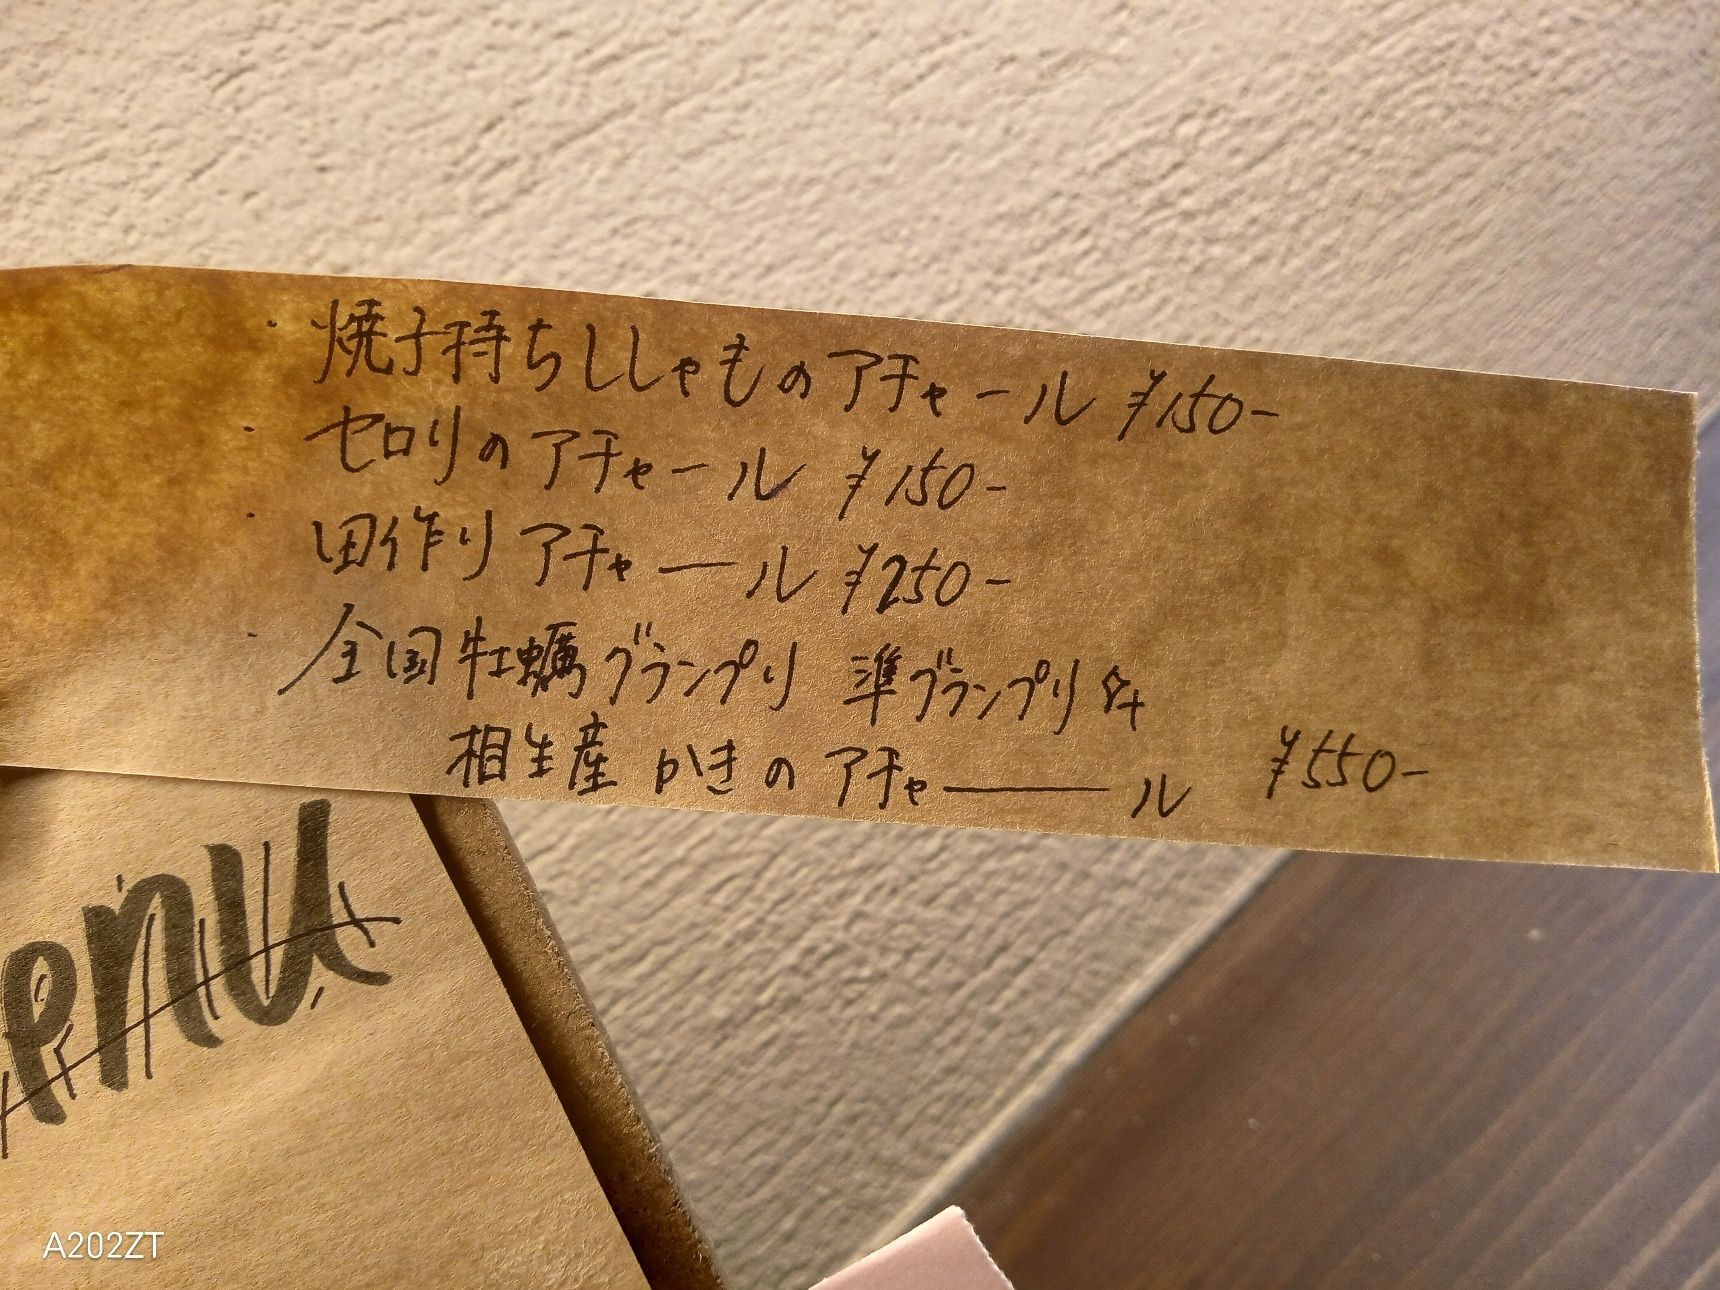 ・焼子持ちししゃものアチャール ¥150-
・セロリのアチャール ¥150-
・田作りアチャール ¥250-
・全国牡蠣グランプリ 準グランプリ☆+
相生産 かきのアチャール ¥550-
enu
A202ZT